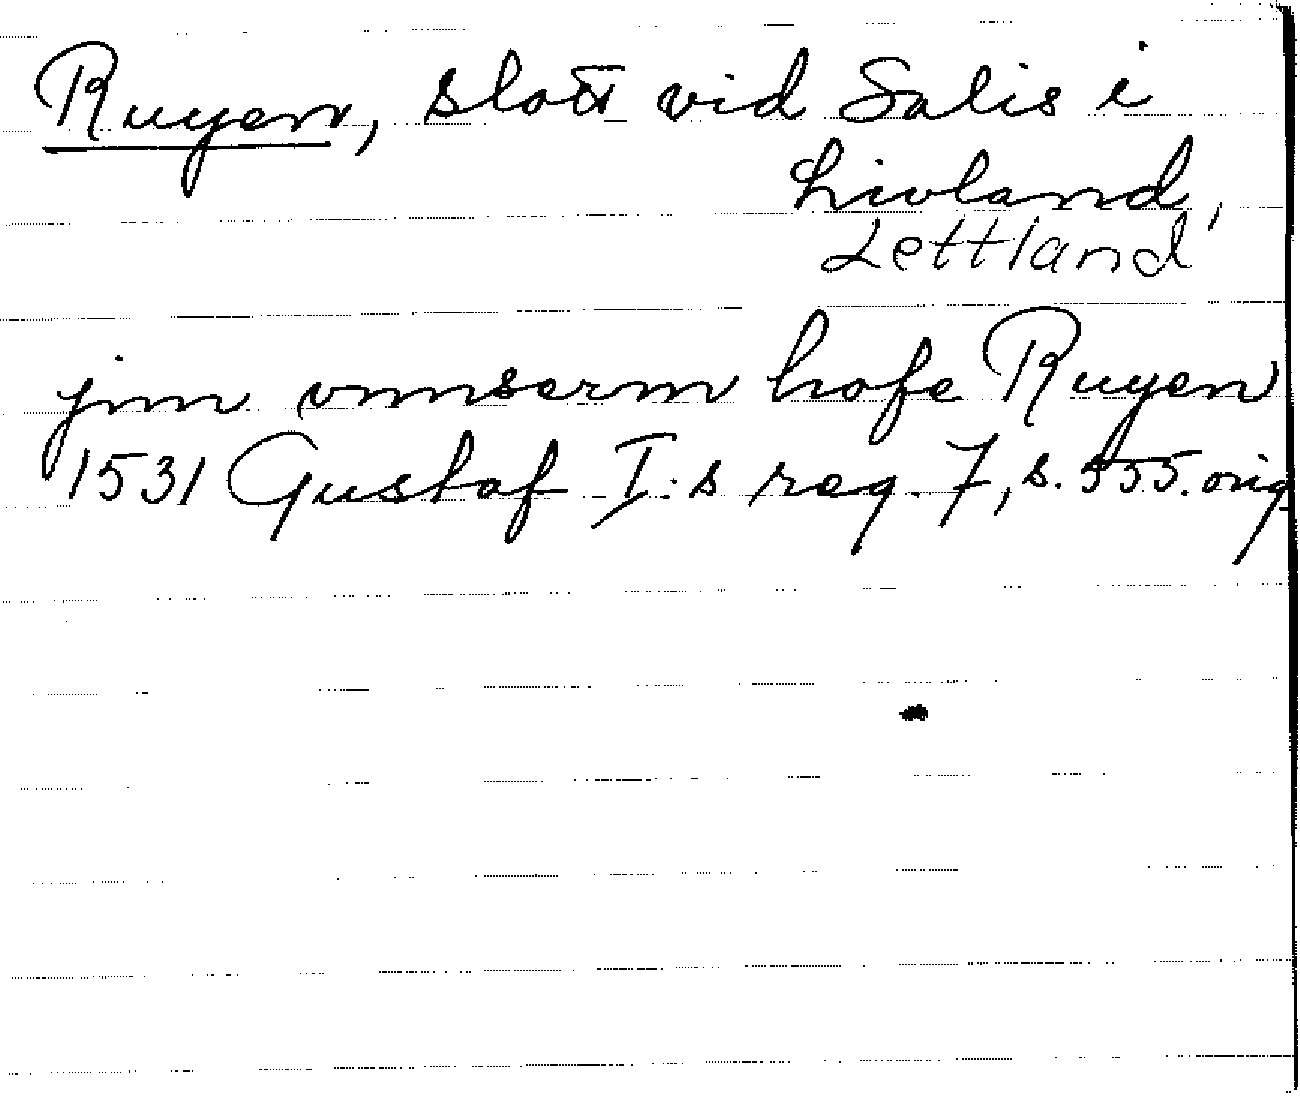 Ruyen, slott vid Salis i
Livland,
Lettland
jnn vnnserm hofe Ruyen
1531 Gustaf I:s reg. 7, s. 555. orig